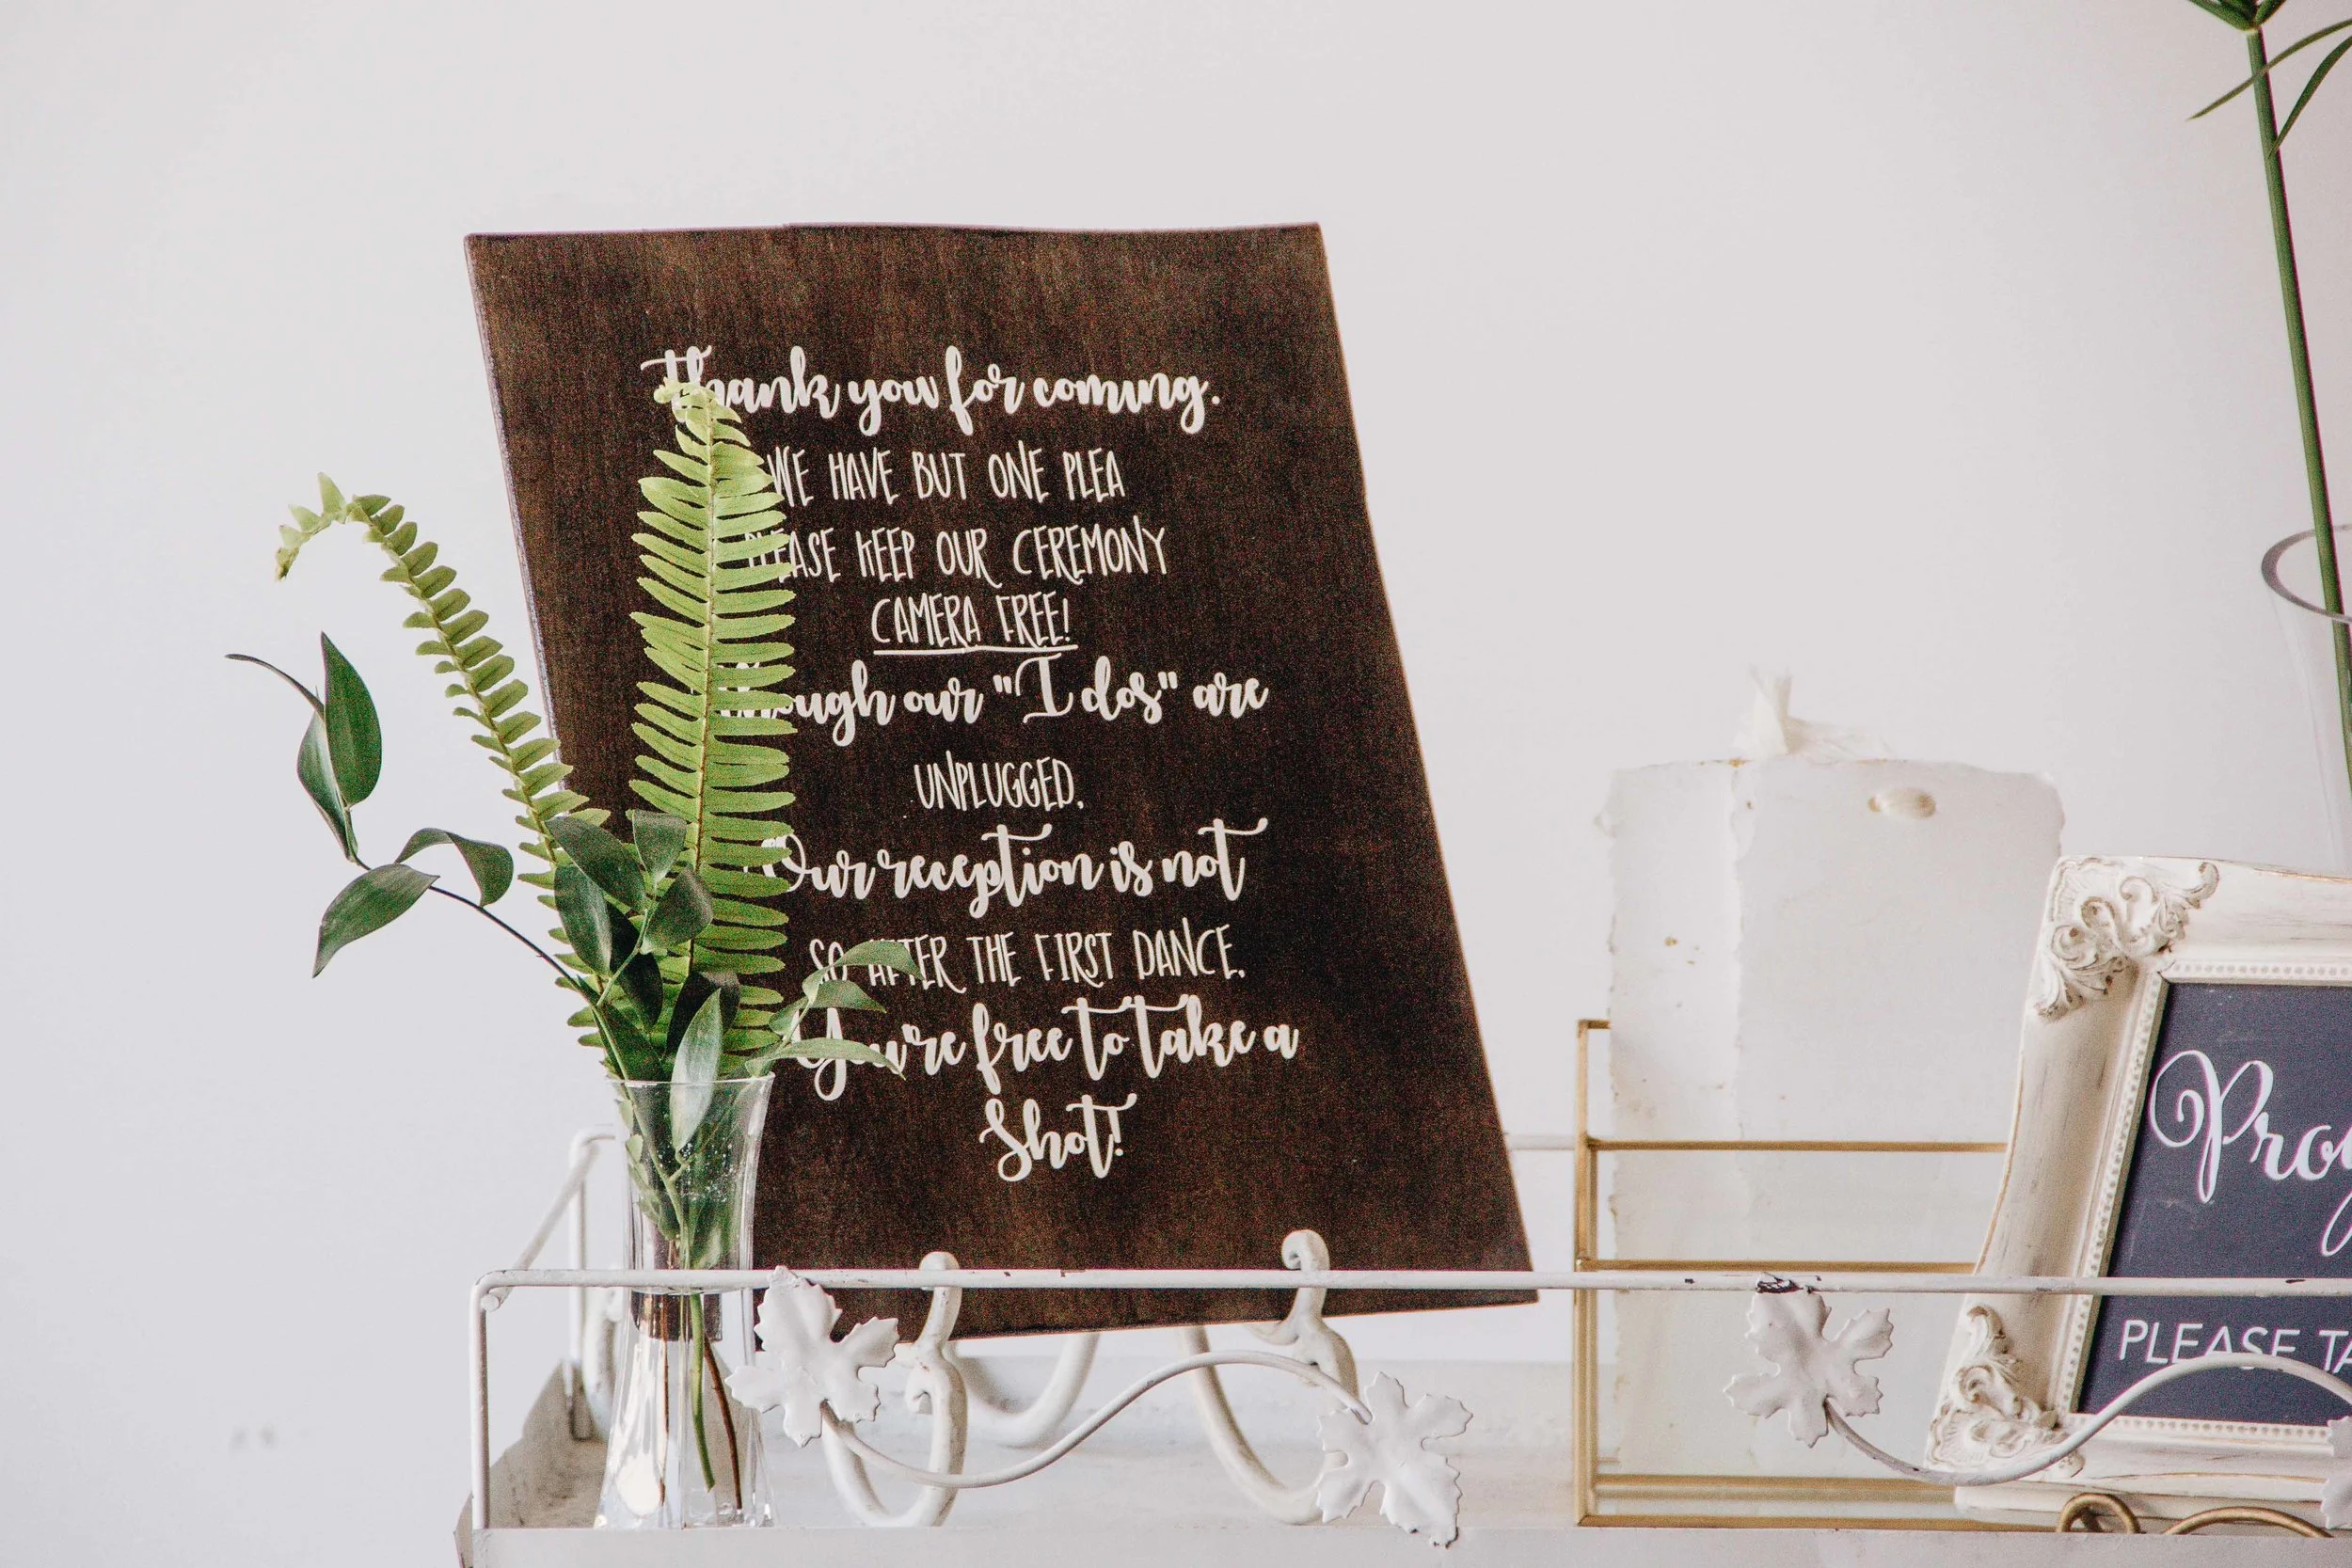 Thank you for coming.
WE HAVE BUT ONE PLEA
PLEASE KEEP OUR CEREMONY
CAMERA FREE!
Though our "I dos" are
UNPLUGGED.
Our reception is not
SO AFTER THE FIRST DANCE,
You're free to take a
Shot!
PLEASE